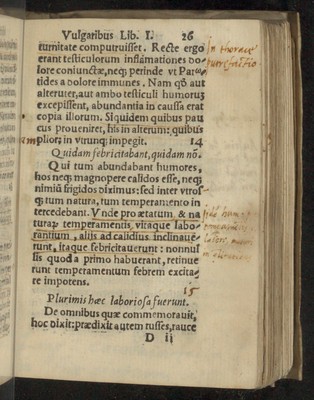 Vulgaribus Lib. I. 26
turnitate computruisset. Recte ergo
erant testiculorum inflãmationes do-
lore coniunctæ, neq; perinde vt Paro
tides a dolore immunes. Nam qđ aut
alteruter, aut ambo testiculi humorẽ
excepissent, abundantia in caussa erat
copia illorum. Siquidem quibus pau
cus proueniret, his in alterum: quibus
plior; in vtrunq; impegit. 14
Quidam febricitabant, quidam nõ.
Qui tum abundabant humores,
hos neq; magnopere calidos esse, neq;
nimiũ frigidos diximus: sed inter vtros
q; tum natura, tum temperamento in
tercedebant. Vnde pro ætatum, & na
turaꝝ temperamentis, vitæque labo
rantium, aliis ad calidius inclinaue-
runt, itaque febricitauerunt: nonnul
lis quod a primo habuerant, retinue
runt temperamentum febrem excita-
re impotens. 15
Plurimis hæc laboriosa fuerunt.
De omnibus quæ commemorauit,
hoc dixit: prædixit autem tusses, rauce
D ii
In thorace
putrefactio